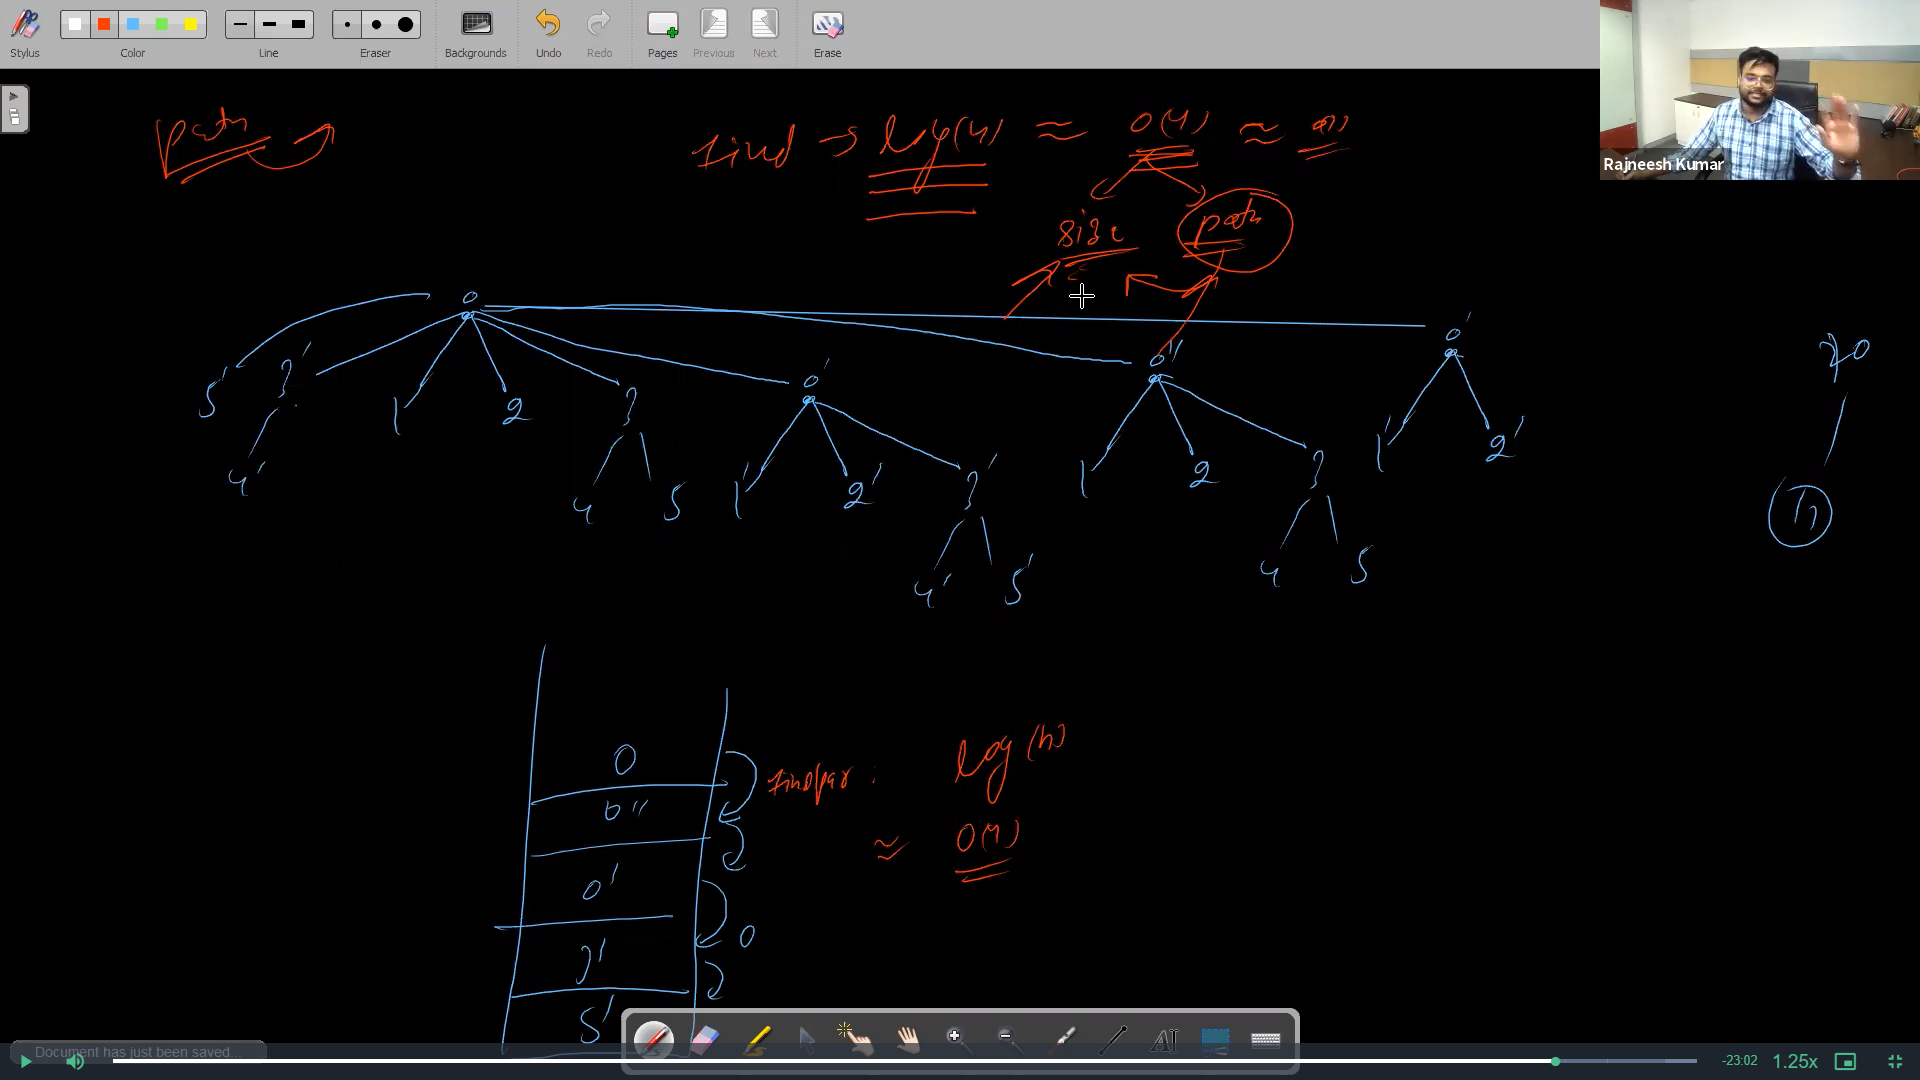 Stylus Color Line Eraser Backgrounds Undo Redo Pages Previous Next Erase
Rajneesh Kumar
path
find → log(4) ≈ O(4) ≈
size path
0
5' 3' 1 2 3 0' 0'' 0'
4' 4 5 1' 2' 3' 1 2 3 1' 2'
4' 5' 4 5
0
0''
findpar : log(n)
0' ≈ O(4)
0
3'
5'
Document has just been saved...
-23:02 1.25x